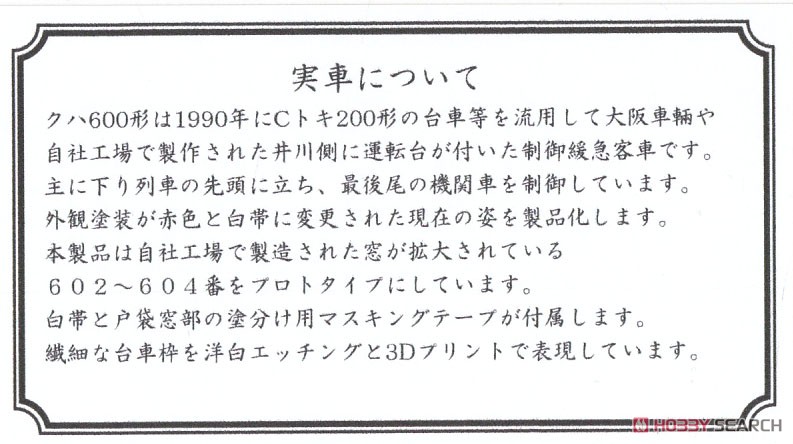 実車について
クハ600形は1990年にCトキ200形の台車等を流用して大阪車輌や
自社工場で製作された井川側に運転台が付いた制御緩急客車です。
主に下り列車の先頭に立ち、最後尾の機関車を制御しています。
外観塗装が赤色と白帯に変更された現在の姿を製品化します。
本製品は自社工場で製造された窓が拡大されている
６０２～６０４番をプロトタイプにしています。
白帯と戸袋窓部の塗分け用マスキングテープが付属します。
繊細な台車枠を洋白エッチングと3Dプリントで表現しています。
HOBBYSEARCH